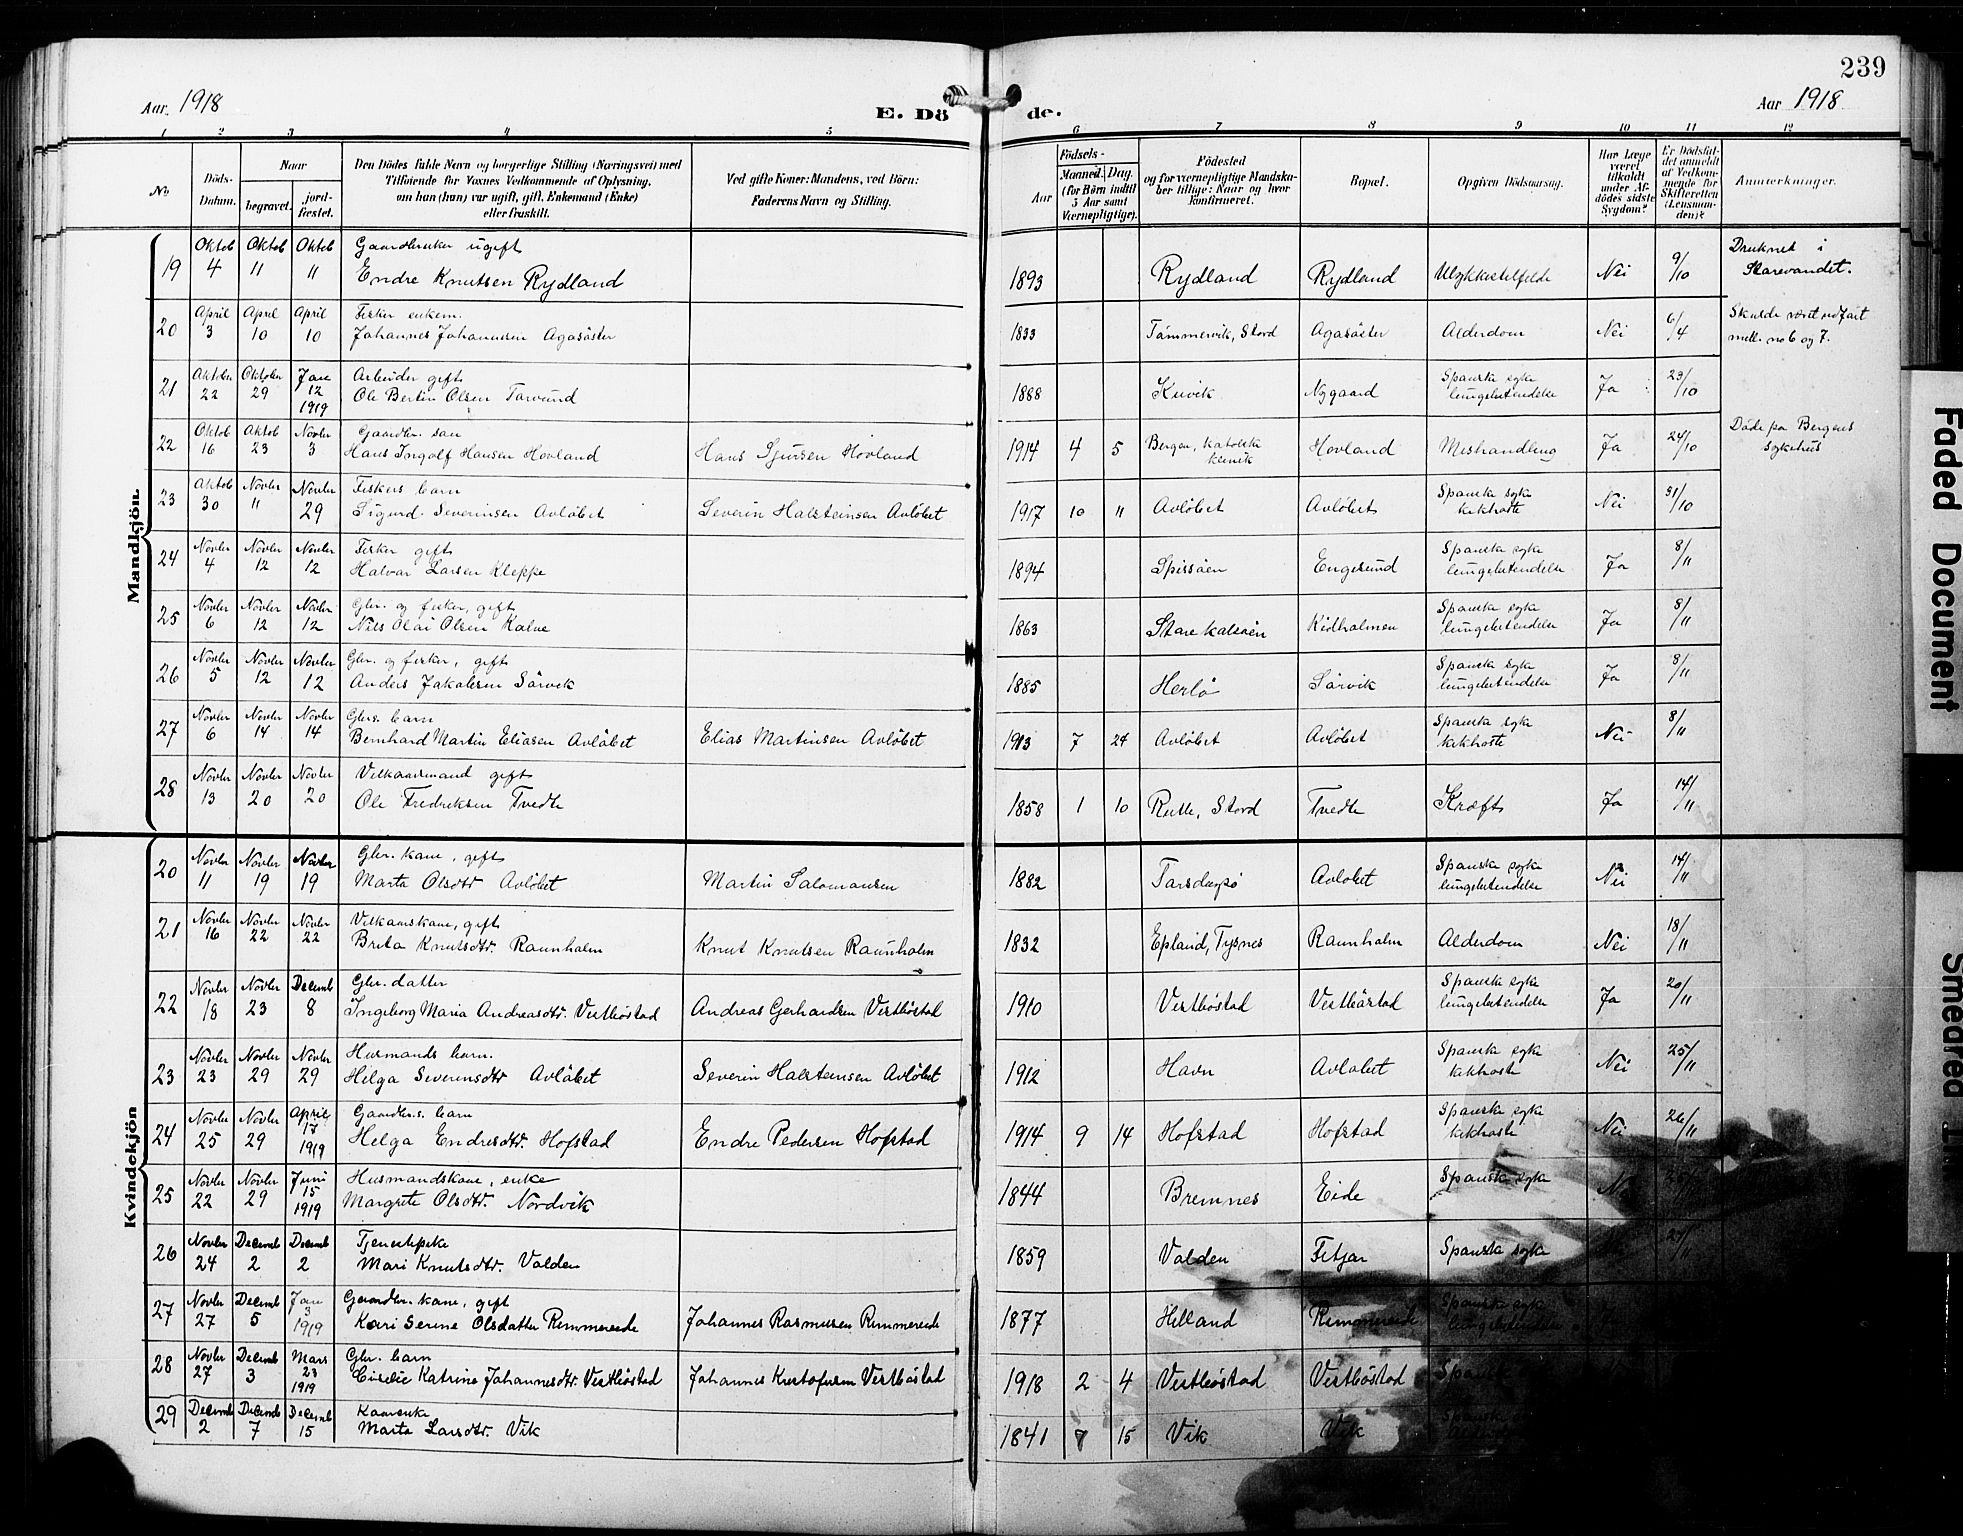 239
Aar 1918
E. Dö
de.
Aar 1918
1 2 3 4 5 6 7 8 9 10 11 12
No
Döds-Datum.
Naar
begravet.
jord-fæstet.
Den Dödes fulde Navn og borgerlige Stilling (Næringsvei) med
Tilföiende for Voxnes Vedkommende af Oplysning,
om han (hun) var ugift, gift, Enkemand (Enke)
eller fraskilt.
Ved gifte Koner: Mandens, ved Börn:
Faderens Navn og Stilling.
Födsels-
Aar
Maaned. Dag.
(for Börn indtil
5 Aar samt
Værnepligtige).
Födested
og for værnepligtige Mandska-
ber tillige: Naar og hvor
konfirmeret.
Bopæl.
Opgiven Dödsaarsag.
Har Læge
været
tilkaldt
under Af-
dödes sidste
Sygdom?
Er Dödsfal-
det anmeldt
af Vedkom-
mende for
Skifteretten
(Lensman-
den)?
Anmærkninger.
Mandkjön.
19 Oktob 4 Oktob 11 Oktob 11 Gaardbruker ugift
Endre Knutsen Rydland 1893 Rydland Rydland Ulykkestilfelde Nei 9/10 Druknet i
Storevandet.
20 April 3 April 10 April 10 Fisker enkem.
Johannes Johannessen Agasöster 1833 Tömmervik, Stord Agasöster Alderdom Nei 6/4 Skulde været indfört
mell. no 6 og 7.
21 Oktober 22 Oktober 29 Jan 12 1919 Arbeider gift
Ole Bertin Olsen 1888 Nygaard Spanske syke
lungebetendelse Ja 23/10
22 Oktob 16 Oktob 23 Novbr 3 Gaardbr. sön
Hans Ingolf Hansen Hovland Hans Sjursen Hovland 1914 4 5 Bergen, katolske
klinik Hovland Mishandling Ja 24/10 Döde paa Bergens
sykehus
23 Oktob 30 Novbr 11 Novbr 29 Fiskers barn
Sigurd Severinsen Avlöbet Severin Halsteinsen Avlöbet 1917 10 11 Avlöbet Avlöbet Spanske syke
kikhoste Nei 31/10
24 Novbr 4 Novbr 12 Novbr 12 Fisker gift
Halvor Larsen Kleppe 1894 Spissöen Engesund Spanske syke
lungebetendelse Ja 8/11
25 Novbr 6 Novbr 12 Novbr 12 Gbr. og fisker, gift
Nils Olai Olsen 1863 Store kalsöen Kidholmen Spanske syke
lungebetendelse Ja 8/11
26 Novbr 5 Novbr 12 Novbr 12 Gbr. og fisker, gift
Anders Jakobsen Sörvik 1885 Herlö Sörvik Spanske syke
lungebetendelse Ja 8/11
27 Novbr 6 Novbr 14 Novbr 14 Gbrs. barn
Bernhard Martin Eliasen Avlöbet Elias Martinsen Avlöbet 1913 7 24 Avlöbet Avlöbet Spanske syke
kikhoste Nei 8/11
28 Novbr 13 Novbr 20 Novbr 20 Vilkaarsmand gift
Ole Fredriksen Tvedte 1858 1 10 Rutle, Stord Tvedte Kræft Ja 14/11
Kvindekjön
20 Novbr 11 Novbr 19 Novbr 19 Gbr. kone, gift
Marta Olsdtr Avlöbet Martin Salomonsen 1882 Avlöbet Spanske syke
lungebetendelse Nei 14/11
21 Novbr 16 Novbr 22 Novbr 22 Vilkaarskone, gift
Brita Knutsdtr. Raunholm Knut Knutsen Raunholm 1832 Epland, Tysnes Raunholm Alderdom Nei 18/11
22 Novbr 18 Novbr 23 Decemb 8 Gbr. datter
Ingeborg Maria Andreasdtr. Vestböstad Andreas Gerhardsen Vestböstad 1910 Vestböstad Vestböstad Spanske syke
lungebetendelse Ja 20/11
23 Novbr 23 Novbr 29 Novbr 29 Husmands barn.
Helga Severinsdtr Avlöbet Severin Halsteinsen Avlöbet 1912 Havn Avlöbet Spanske syke
kikhoste Nei 25/11
24 Novbr 25 Novbr 29 April 17 1919 Gaardbr.s. barn
Helga Endresdtr. Hofstad Endre Pedersen Hofstad 1914 9 14 Hofstad Hofstad Spanske syke
kikhoste Nei 26/11
25 Novbr 22 Novbr 29 Juni 15 1919 Husmandskone, enke
Margrete Olsdtr. Nordvik 1844 Bremnes Eide Spanske syke
26 Novbr 24 Decemb 2 Decemb 2 Tjenestepike
Mari Knutsdtr. Valden 1859 Valden Fitjar Spanske syke
27 Novbr 27 Decemb 5 Jan 3 1919 Gaardbr. kone, gift
Kari Serine Olsdatter Rimmereide Johannes Rasmussen Rimmereide 1877 Helland Rimmereide Spanske syke
lungebetendelse
28 Novbr 27 Decemb 3 Mars 23 1919 Gbr. barn
Katrine Johannesdtr. Vestböstad Johannes Kristofersen Vestböstad 1918 2 4 Vestböstad Vestböstad
29 Decemb 2 Decemb 7 Decemb 15 Kaarenke
Marta Larsdtr. Vik 1841 7 15 Vik Vik
Faded Document
Smeared